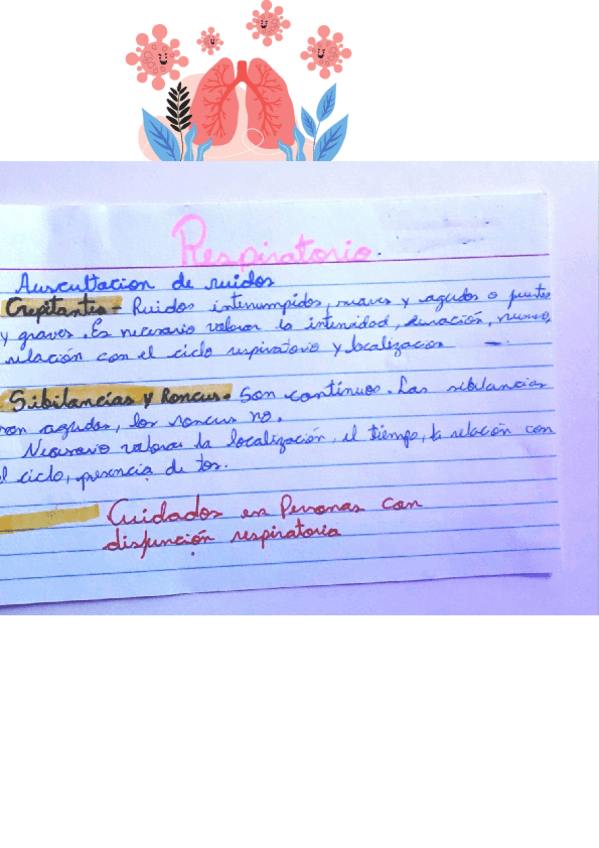 Respiratorio.
Auscultación de ruidos
Crepitantes - Ruidos interrumpidos, suaves y agudos o fuertes
y graves. Es necesario valorar la intensidad, duración, número,
relación con el ciclo respiratorio y localización
Sibilancias y Roncus. Son contínuos. Las sibilancias
son agudos, los roncus no.
Necesario valorar la localización, el tiempo, la relación con
el ciclo, presencia de tos.
Cuidados en Personas con
disfunción respiratoria